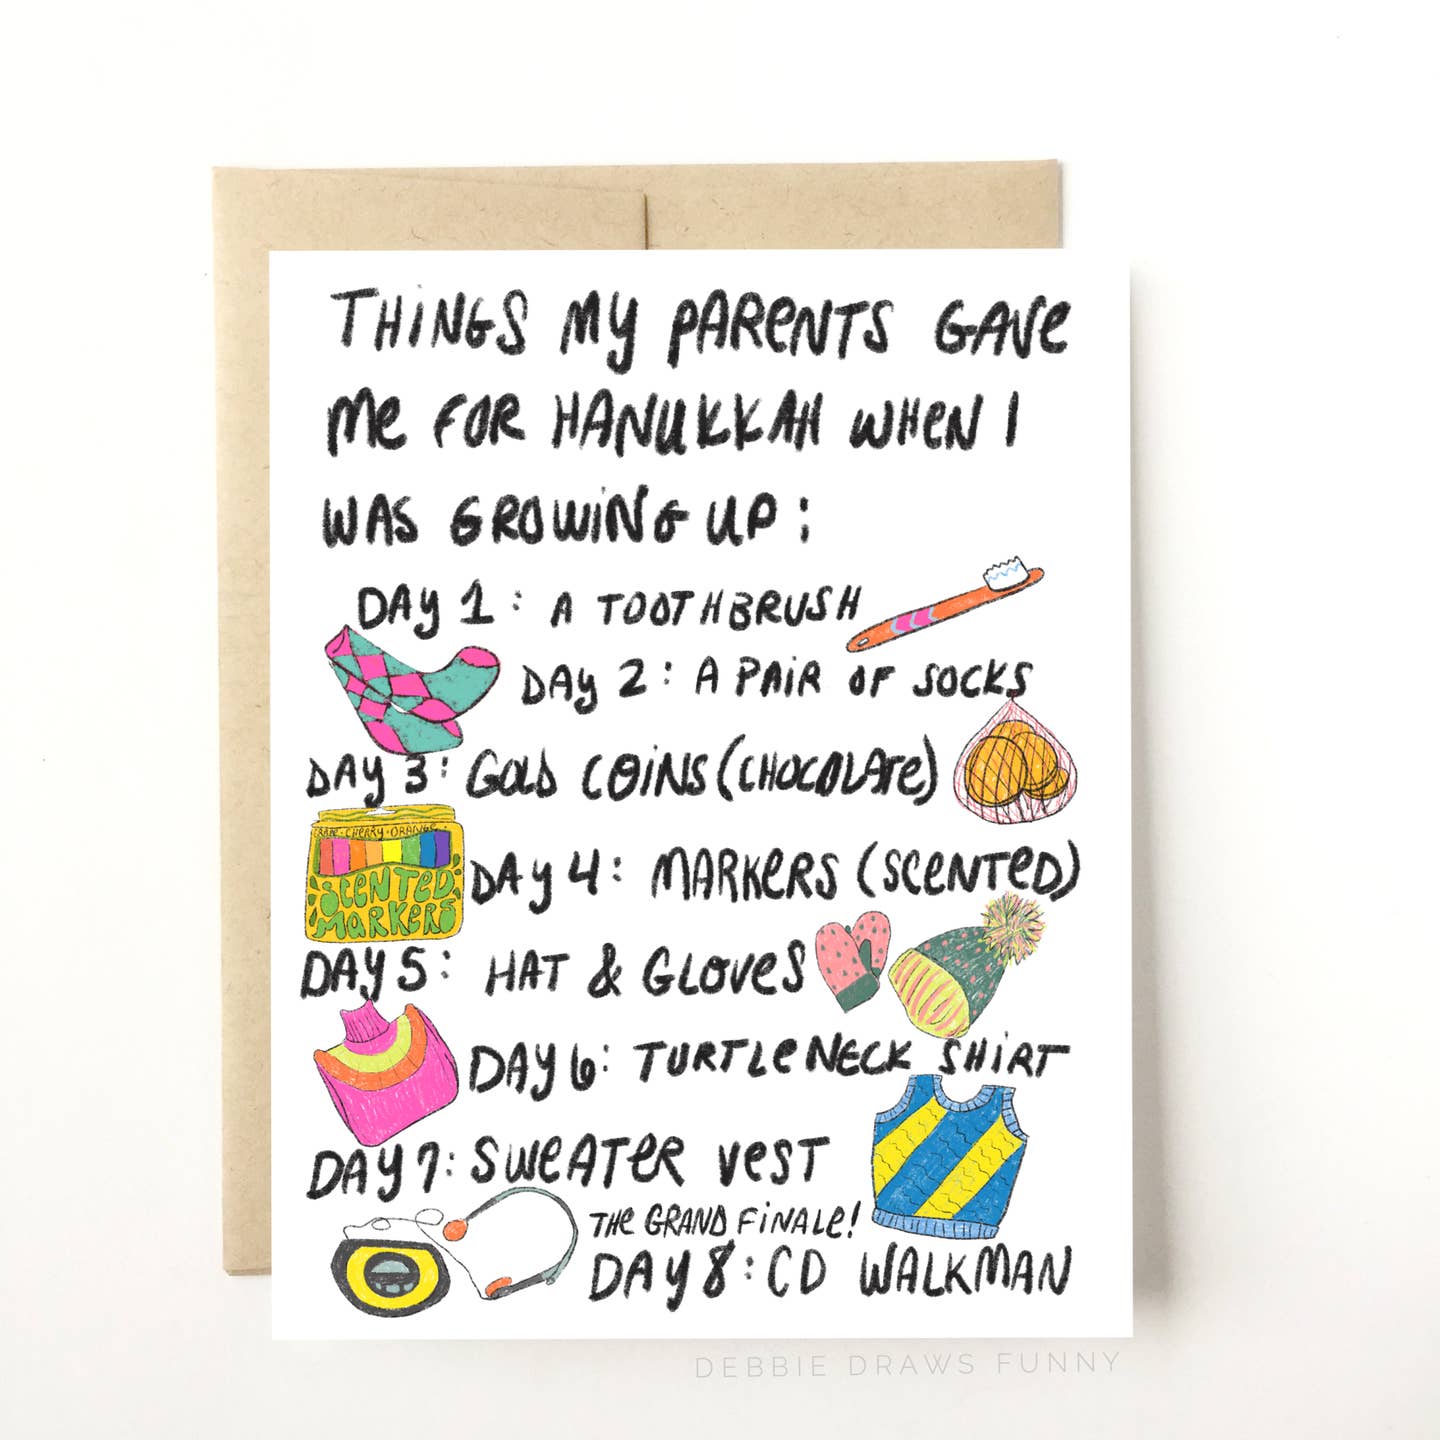 THINGS MY PARENTS GAVE
ME FOR HANUKKAH WHEN I
WAS GROWING UP:
DAY 1: A TOOTHBRUSH
DAY 2: A PAIR OF SOCKS
DAY 3: GOLD COINS (CHOCOLATE)
GRAPE · CHERRY · ORANGE
SCENTED
MARKERS
DAY 4: MARKERS (SCENTED)
DAY 5: HAT & GLOVES
DAY 6: TURTLENECK SHIRT
DAY 7: SWEATER VEST
THE GRAND FINALE!
DAY 8: CD WALKMAN
DEBBIE DRAWS FUNNY